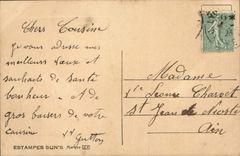 Chers Cousine
Je vous adresse mes
meilleurs vœux et
souhaits de santé
bonheur. et de
gros baisers de votre
cousin
Madame
Vve Leonce Charvet
St Jean de
Ain
ESTAMPES SUN'S